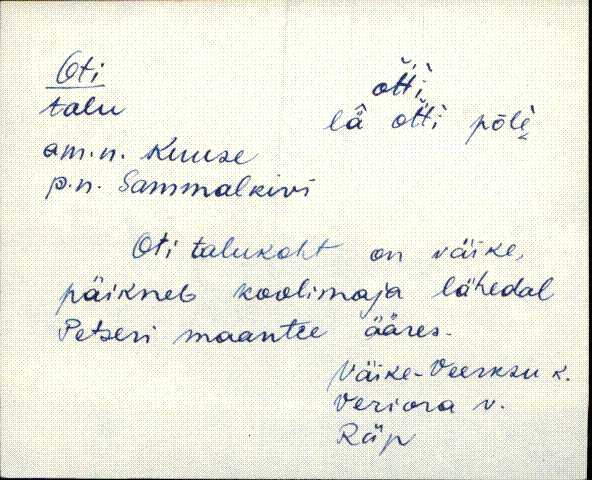 Oti
talu
am.n. Kuuse
p.n. Sammalkivi
ŏtti
lä ŏtti põlè
Oti talukoht on väike,
päikneb koolimaja lähedal
Petseri maantee ääres.
Väike-Veerksu k.
Veriora v.
Räp